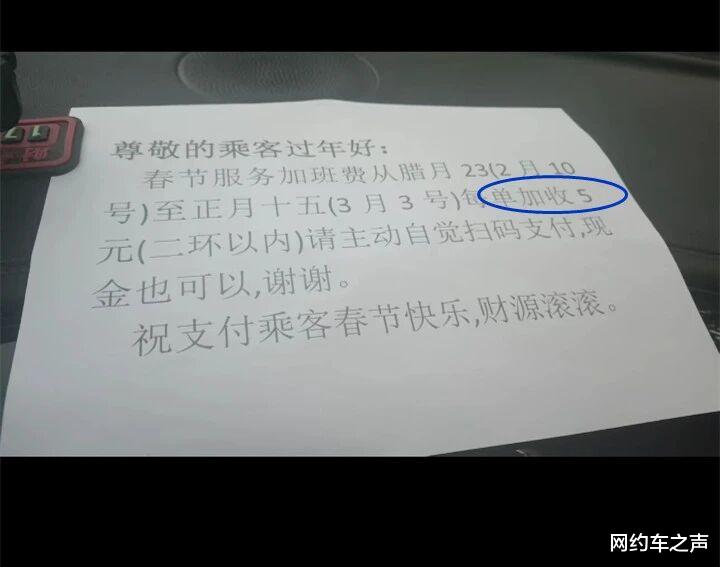 尊敬的乘客过年好:
春节服务加班费从腊月 23(2 月 10
号)至正月十五(3 月 3 号)每单加收 5
元(二环以内)请主动自觉扫码支付,现
金也可以,谢谢。
祝支付乘客春节快乐,财源滚滚。
网约车之声